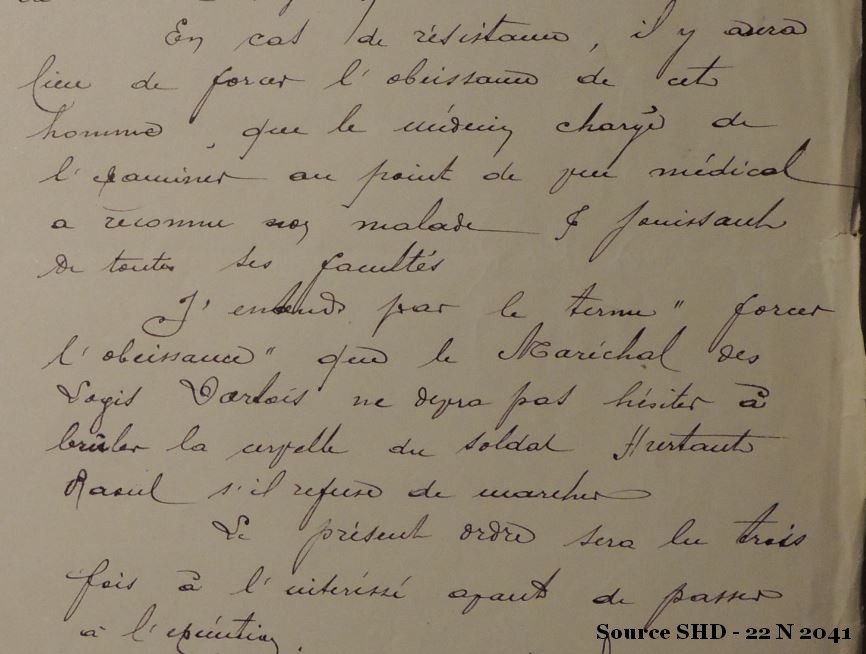 En cas de résistance, il y aura
lieu de forcer l'obeissance de cet
homme, que le médecin chargé de
l'examiner au point de vue médical
a reconnu non malade & jouissant
de toutes ses facultés
J'entends par le terme " forcer
l'obeissance" que le Maréchal des
Logis Darlois ne devra pas hésiter à
brûler la cervelle du soldat Hurtaut
Raoul s'il refuse de marcher
Le présent ordre sera lu trois
fois à l'intéressé avant de passer
à l'exécution.
Source SHD - 22 N 2041